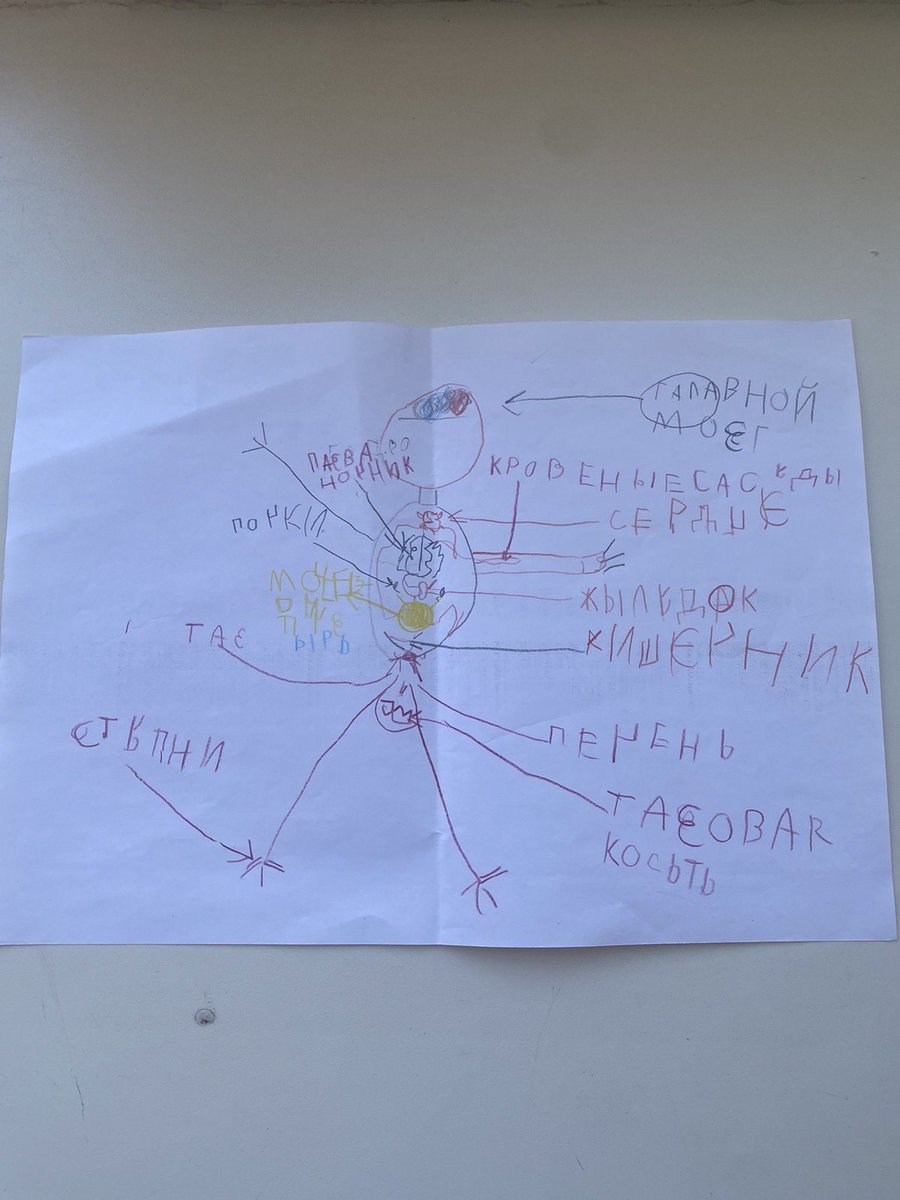 ГАЛАВНОЙ
МОЗГ
ПАЗВА
НОЧНИК
КРОВЕНЫЕ САС КДЫ
ПОЧКИ
СЕРДЦЕ
ПЫРЬ
ЖЫЛУДОК
ТАЗ
КИШЕРНИК
СТУПНИ
ПЕЧЕНЬ
ТАЗОВАЯ
КОСЬТЬ